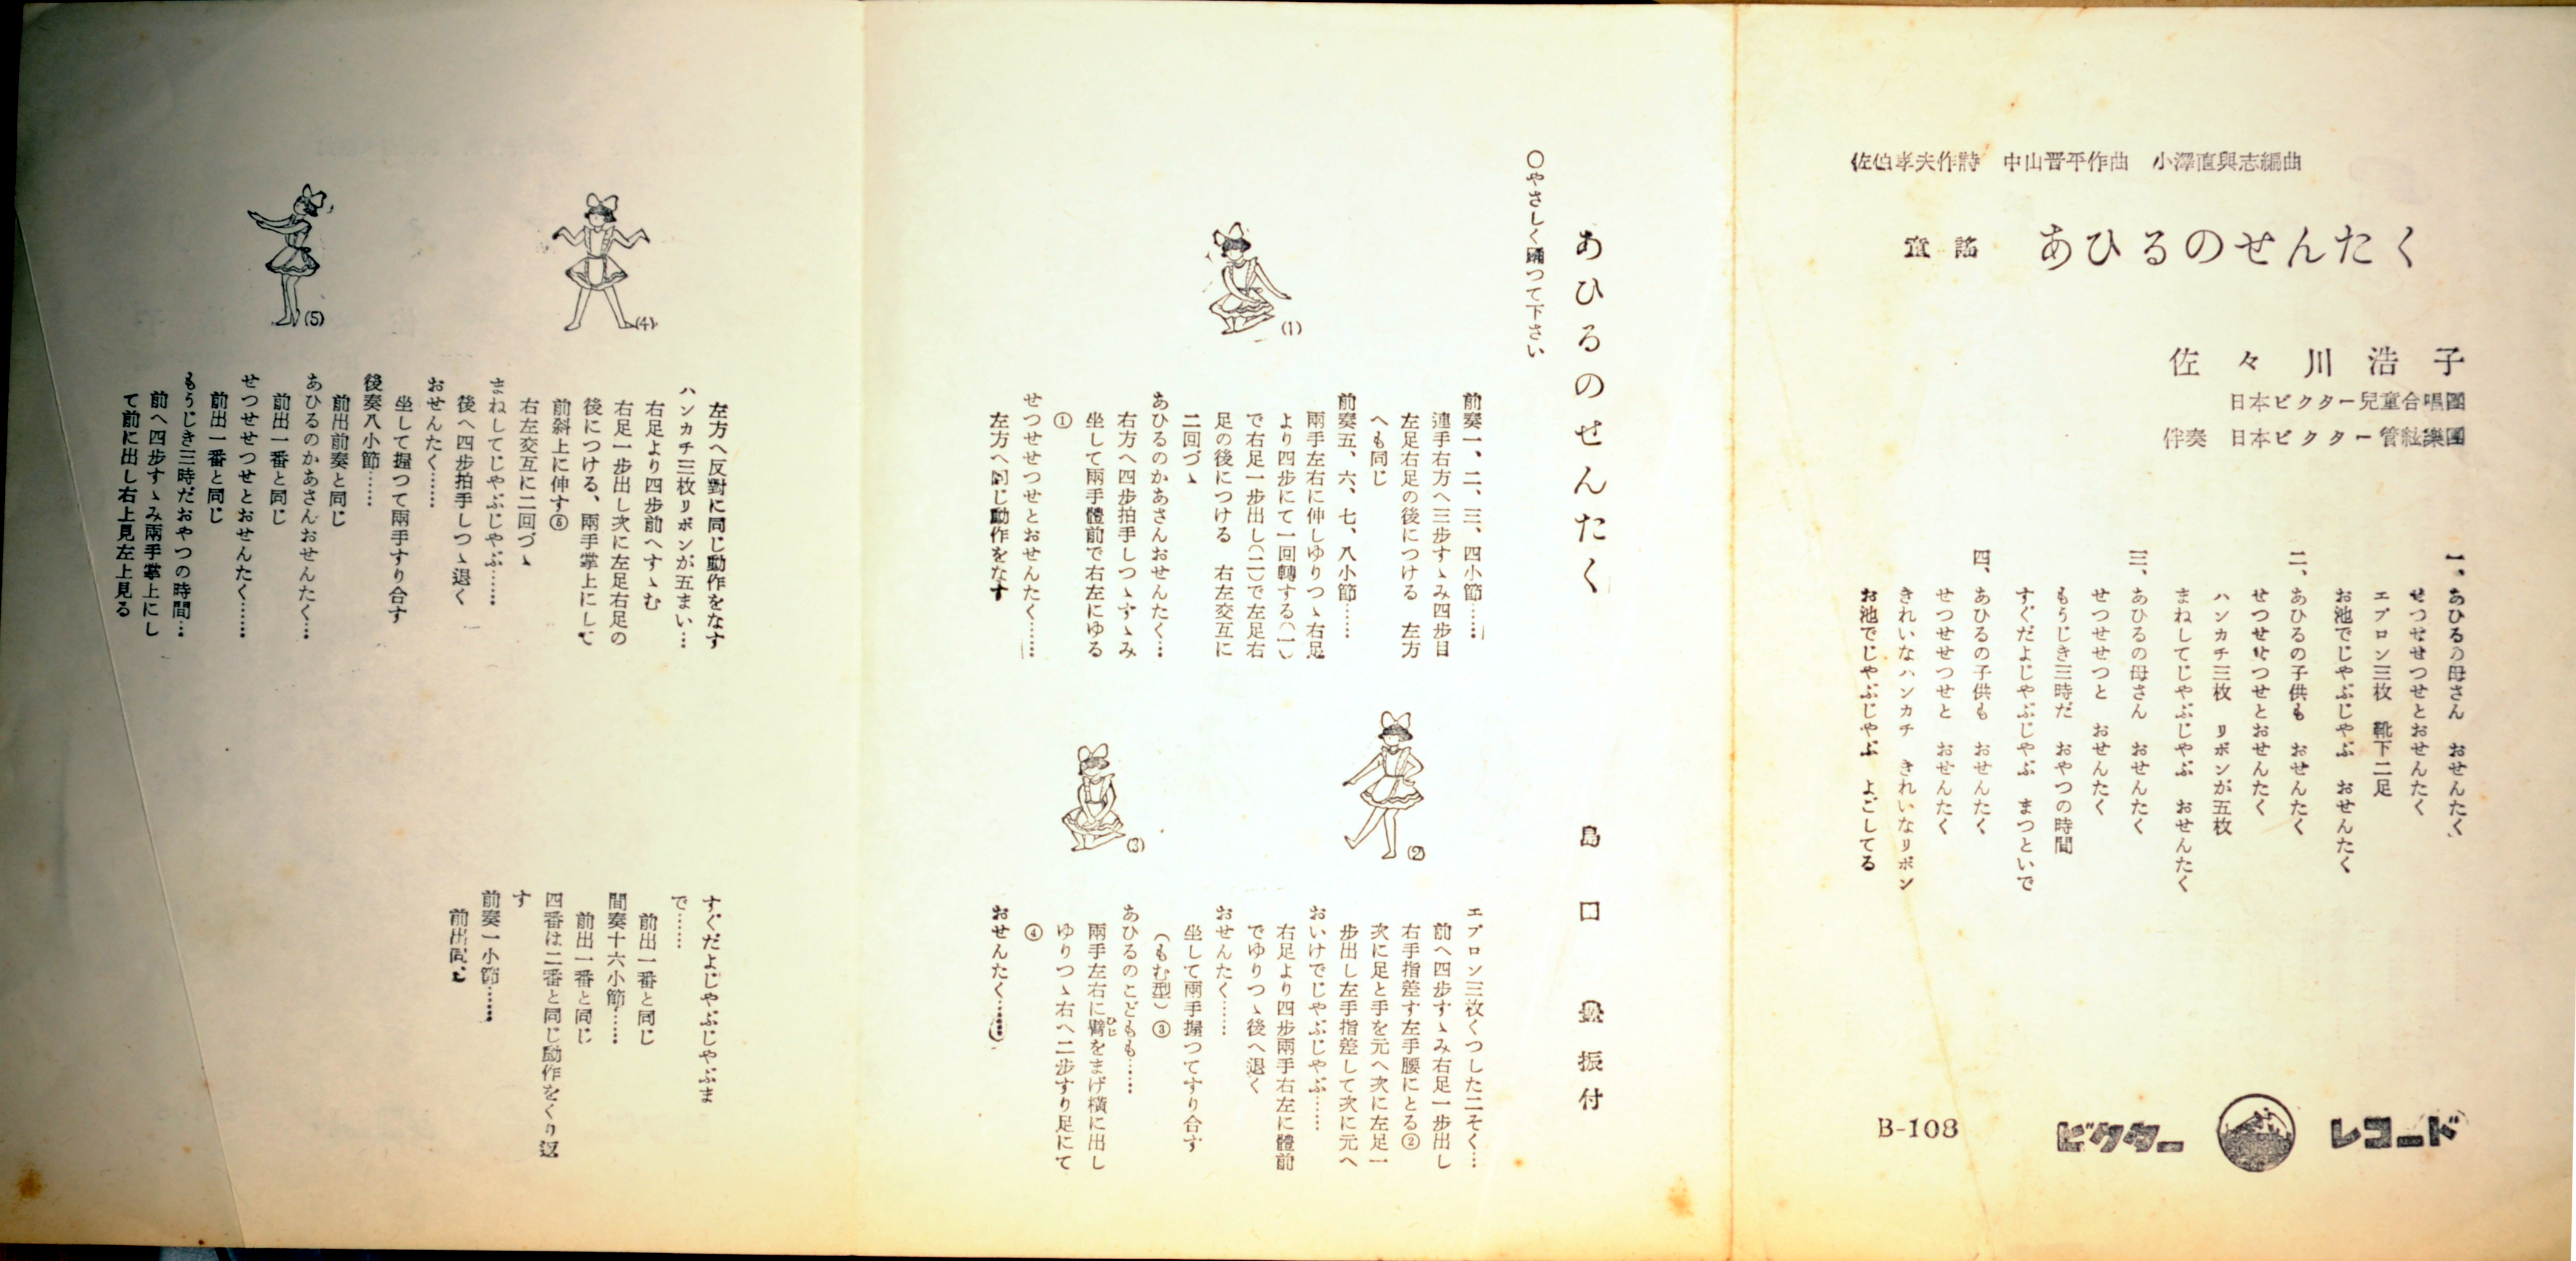 佐伯孝夫作詩 中山晋平作曲 小澤直與志編曲
童謠 あひるのせんたく
佐々川浩子
日本ビクター兒童合唱團
伴奏 日本ビクター管絃樂團
一、あひるの母さん おせんたく
せつせせつせとおせんたく
エプロン三枚 靴下二足
お池でじやぶじやぶ おせんたく
二、あひるの子供も おせんたく
せつせせつせとおせんたく
ハンカチ三枚 リボンが五枚
まねしてじやぶじやぶ おせんたく
三、あひるの母さん おせんたく
せつせせつと おせんたく
もうじき三時だ おやつの時間
すぐだよじやぶじやぶ まつといで
四、あひるの子供も おせんたく
せつせせつせと おせんたく
きれいなハンカチ きれいなリボン
お池でじやぶじやぶ よごしてる
B-108
ビクター レコード
あひるのせんたく
島口 振付
○やさしく踊つて下さい
前奏一、二、三、四小節……
連手右方へ三歩すゝみ四歩目
左足右足の後につける 左方
へも同じ
前奏五、六、七、八小節……
兩手左右に伸しゆりつゝ右足
より四歩にて一回轉する(一)
で右足一歩出し(二)で左足右
足の後につける 右左交互に
二回づゝ
あひるのかあさんおせんたく…
右方へ四歩拍手しつゝすゝみ
坐して兩手體前で右左にゆる
①
せつせせつせとおせんたく……
左方へ同じ動作をなす
(1)
(2)
(3)
エプロン三枚くつした二そく…
前へ四歩すゝみ右足一歩出し
右手指差す左手腰にとる②
次に足と手を元へ次に左足一
歩出し左手指差して次に元へ
おいけでじやぶじやぶ……
右足より四歩兩手右左に體前
でゆりつゝ後へ退く
おせんたく……
坐して兩手握つてすり合す
(もむ型)③
あひるのこどもも……
兩手左右に臂をまげ橫に出し
ひじ
ゆりつゝ右へ二歩すり足にて
④
おせんたく……
左方へ反對に同じ動作をなす
ハンカチ三枚リボンが五まい…
右足より四歩前へすゝむ
右足一歩出し次に左足右足の
後につける、兩手掌上にして
前斜上に伸す⑤
右左交互に二回づゝ
まねしてじやぶじやぶ……
後へ四歩拍手しつゝ退く
おせんたく……
坐して握つて兩手すり合す
後奏八小節……
前出前奏と同じ
あひるのかあさんおせんたく…
前出一番と同じ
せつせせつせとおせんたく……
前出一番と同じ
もうじき三時だおやつの時間…
前へ四歩すゝみ兩手掌上にし
て前に出し右上見左上見る
(4)
(5)
すぐだよじやぶじやぶま
で……
前出一番と同じ
間奏十六小節……
前出一番と同じ
四番は二番と同じ動作をくり返
す
前奏一小節……
前出同じ